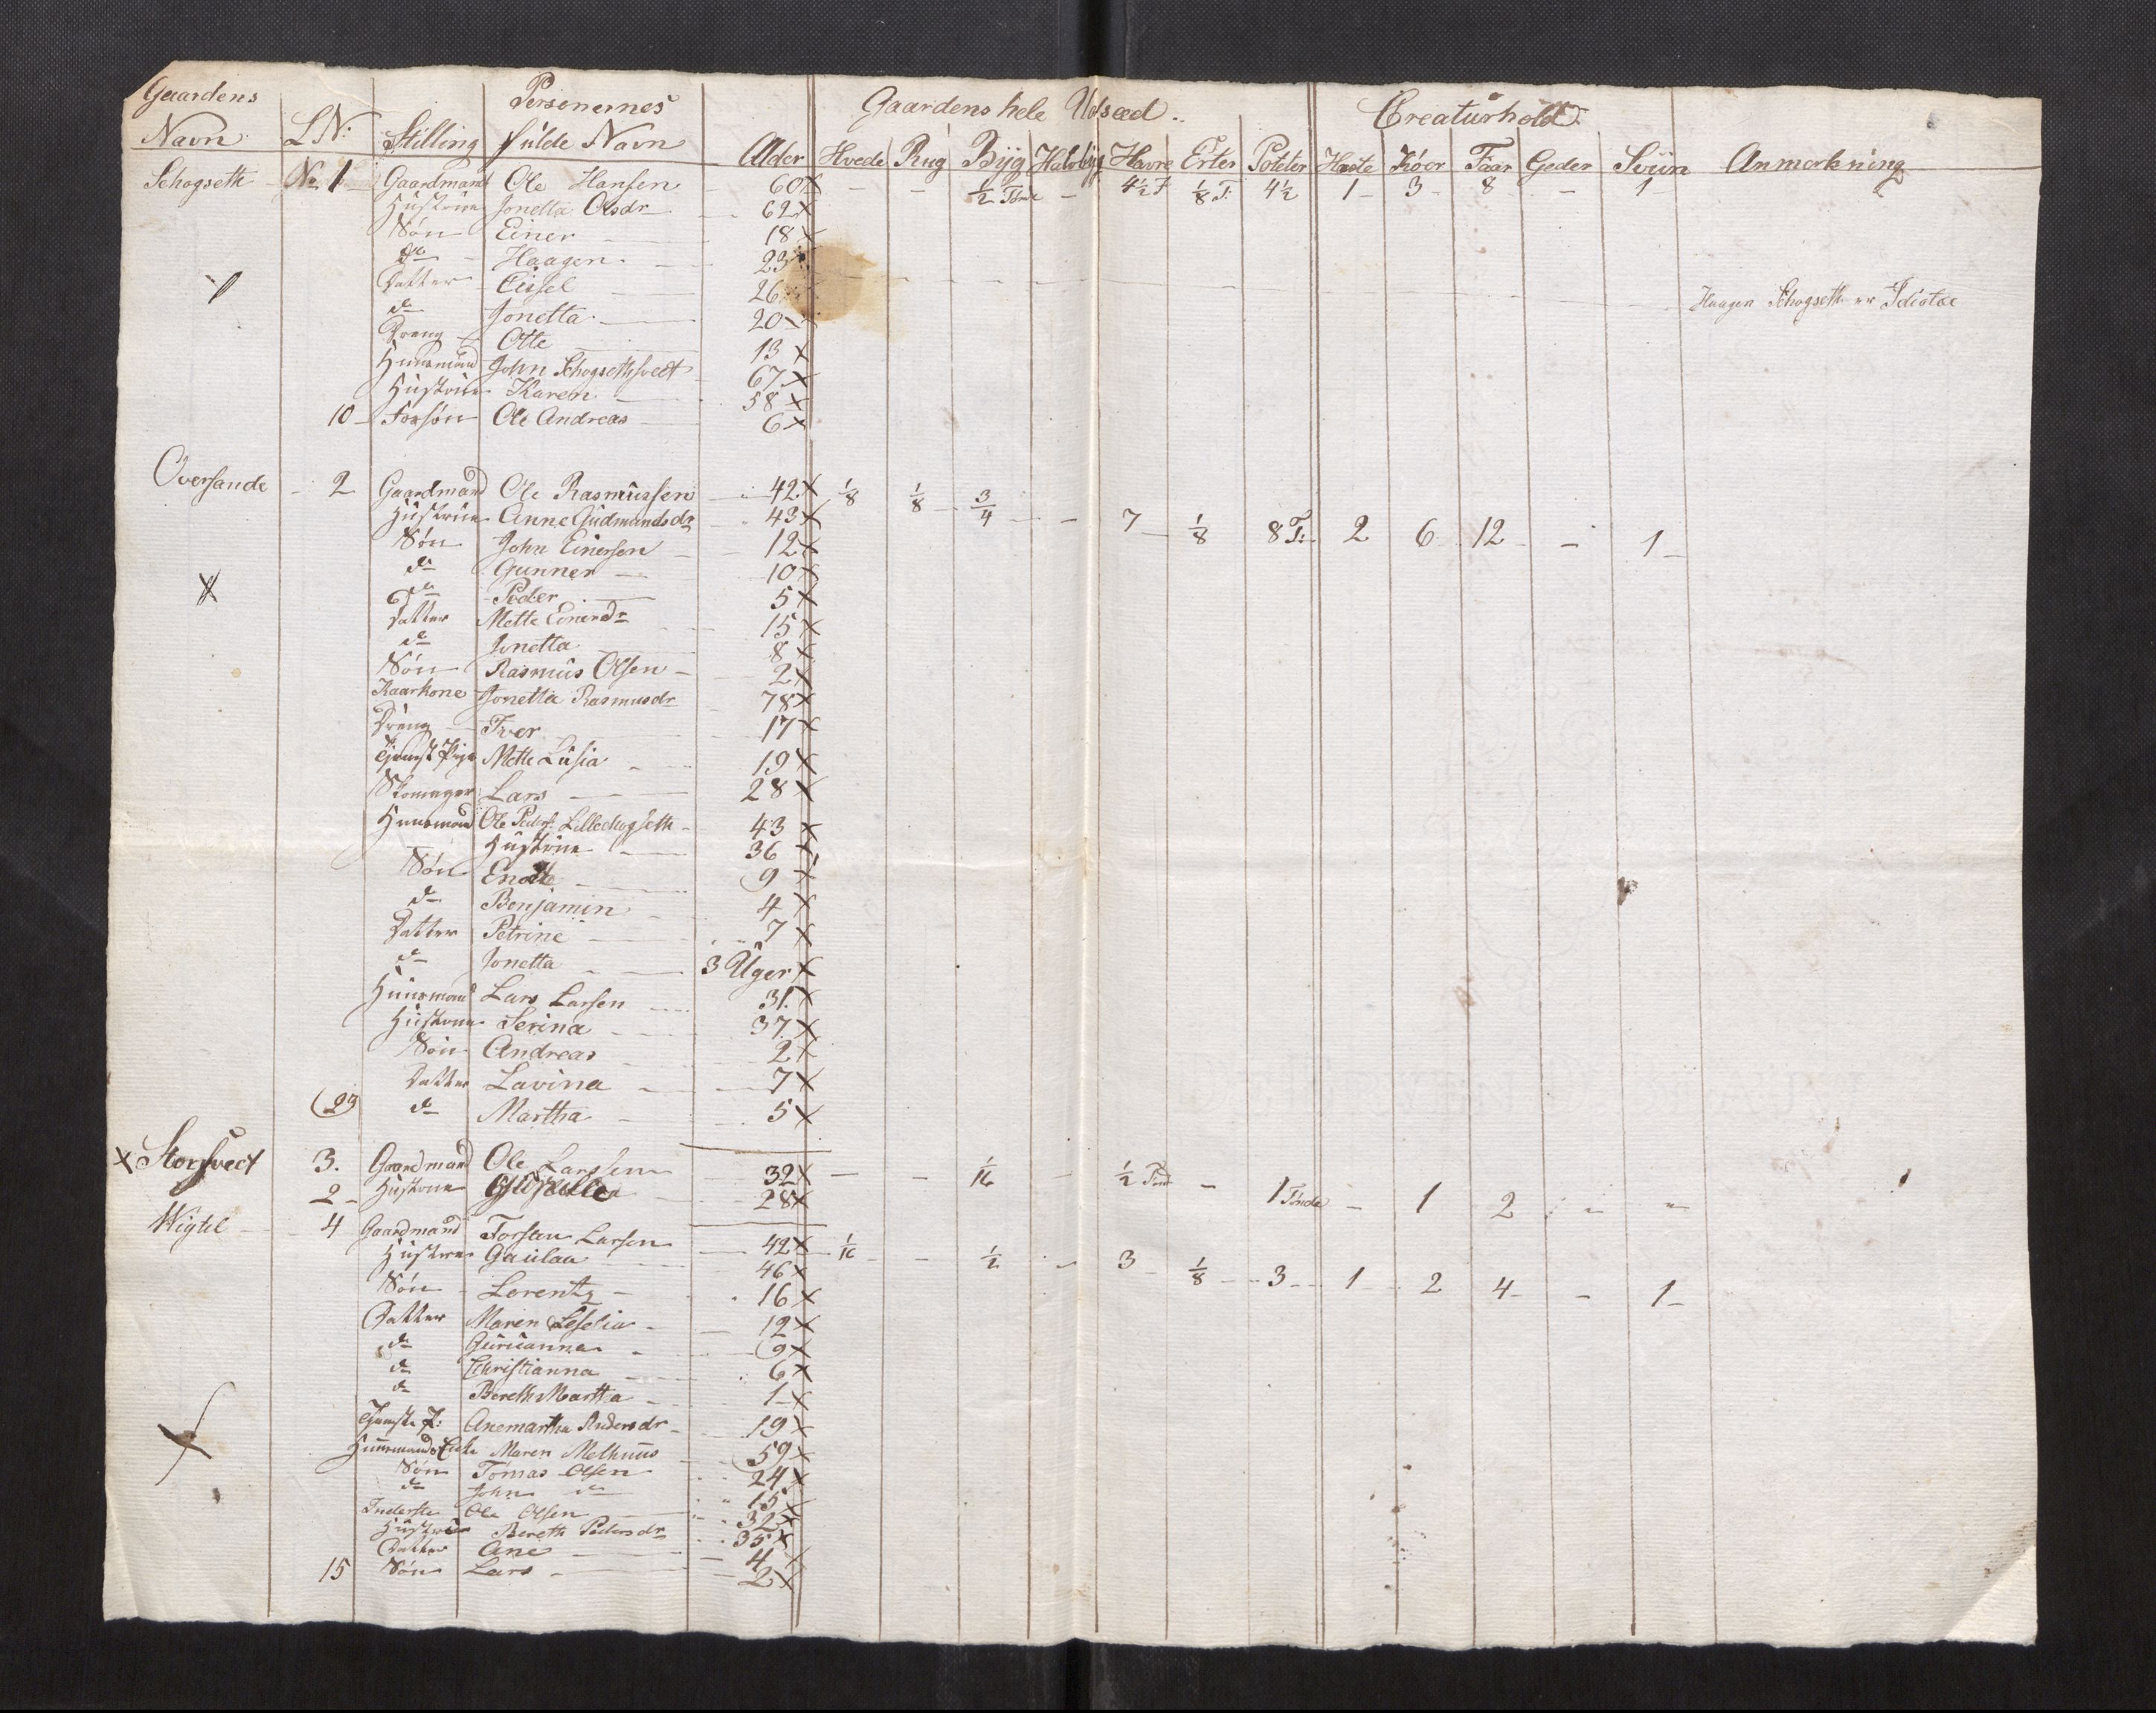 Gaardens Personernes Gaardens hele Udsæd Creaturhold
Navn LN: Stilling fulde Navn Alder Hvede Rug Byg Halvbyg Havre Erter Poteter Heste Köer Faar Geder Sviin Anmerkning
Schogseth No 1 Gaardmand Ole Hansen 60 x - - 1/2 Tönde - 4 1/2 T 1/8 T: 4 1/2 1 3 8 - 1
Hustrue Jonetta Olsdr 62 x
Sön Einer 18 x
do Haagen 23 x Haagen Schogseth er Idiotæ
Datter Cissel 26 x
do Jonetta 20 x
Dreng Otte 13 x
Huusmand John Schogsethsvedt 67 x
Hustrue Karen 58 x
10 Ole Andreas 6 x
Oversande 2 Gaardmand Ole Rasmussen 42 x 1/8 1/8 3/4 - 7 1/8 8 T: 2 6 12 - 1
Hustrue Anne Gudmundsdr 43 x
Sön John Einersen 12 x
do Gunner 10 x
x do Peder 5 x
Datter Mette Einersdr 15 x
do Jonetta 8 x
Sön Rasmus Olsen 2 x
Kaarkone Jonetta Rasmusdr 78 x
Dreng Iver 17 x
Tjenest Pige Mette Lusia 19 x
Skomager Lars 28 x
Huusmand Ole Peders: Lilleschogseth 43 x
Hustrue 36 x
Sön 9 x
do Benjamin 4 x
Datter Petrine 7 x
do Jonetta 3 Uger x
Huusmand Lars Larsen 31 x
Hustrue Serina 37 x
Sön Andreas 2 x
Datter Lavina 7 x
(23 do Martha 5 x
x Storsvedt 3. Gaardmand Ole Larssen 32 x - - 1/16 - 1/2 Tönd - 1 Tönde - 1 2 - -
2 Hustrue 28 x
Wigtel 4 Gaardmand Torsten Larsen 42 x 1/16 - 1/2 - 3 1/8 3 1 2 4 - 1
Hustrue Gaulaa 46 x
Sön Lorentz 16 x
Datter Maren 12 x
do Guruanna 9 x
do Christianna 6 x
do Bereth Martha 1 x
Tjeneste P: Anemartha Andersdr 19 x
Huusmands Enke Maren Melhuus 59 x
Sön Tomas Olsen 24 x
do John do 15
Inderste Ole Olsen 32 x
Hustrue Bereth Pedersdr 35 x
Datter Ane 4 x
15 Sön Lars 2 x